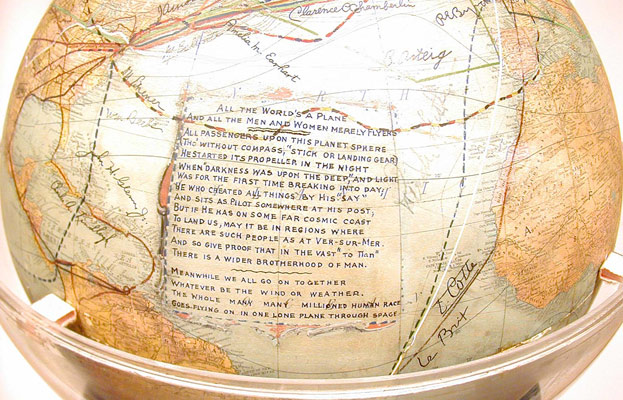 Clarence D. Chamberlin
Amelia M. Earhart
Orteig
ALL THE WORLD'S A PLANE
AND ALL THE MEN AND WOMEN MERELY FLYERS
ALL PASSENGERS UPON THIS PLANET SPHERE
(THO' WITHOUT COMPASS, "STICK" OR LANDING GEAR)
HE STARTED ITS PROPELLER IN THE NIGHT
WHEN "DARKNESS WAS UPON THE DEEP," AND LIGHT
WAS FOR THE FIRST TIME BREAKING INTO DAY;
HE WHO CREATED ALL THINGS BY HIS "SAY"
AND SITS AS PILOT SOMEWHERE AT HIS POST,
BUT IF HE HAS ON SOME FAR COSMIC COAST
TO LAND US, MAY IT BE IN REGIONS WHERE
THERE ARE SUCH PEOPLE AS AT VER-SUR-MER.
AND SO GIVE PROOF THAT IN THE VAST "TO Παν"
THERE IS A WIDER BROTHERHOOD OF MAN.
MEANWHILE WE ALL GO ON TOGETHER
WHATEVER BE THE WIND OR WEATHER.
THE WHOLE MANY MANY MILLIONED HUMAN RACE
GOES FLYING ON IN ONE LONE PLANE THROUGH SPACE
Le Brix